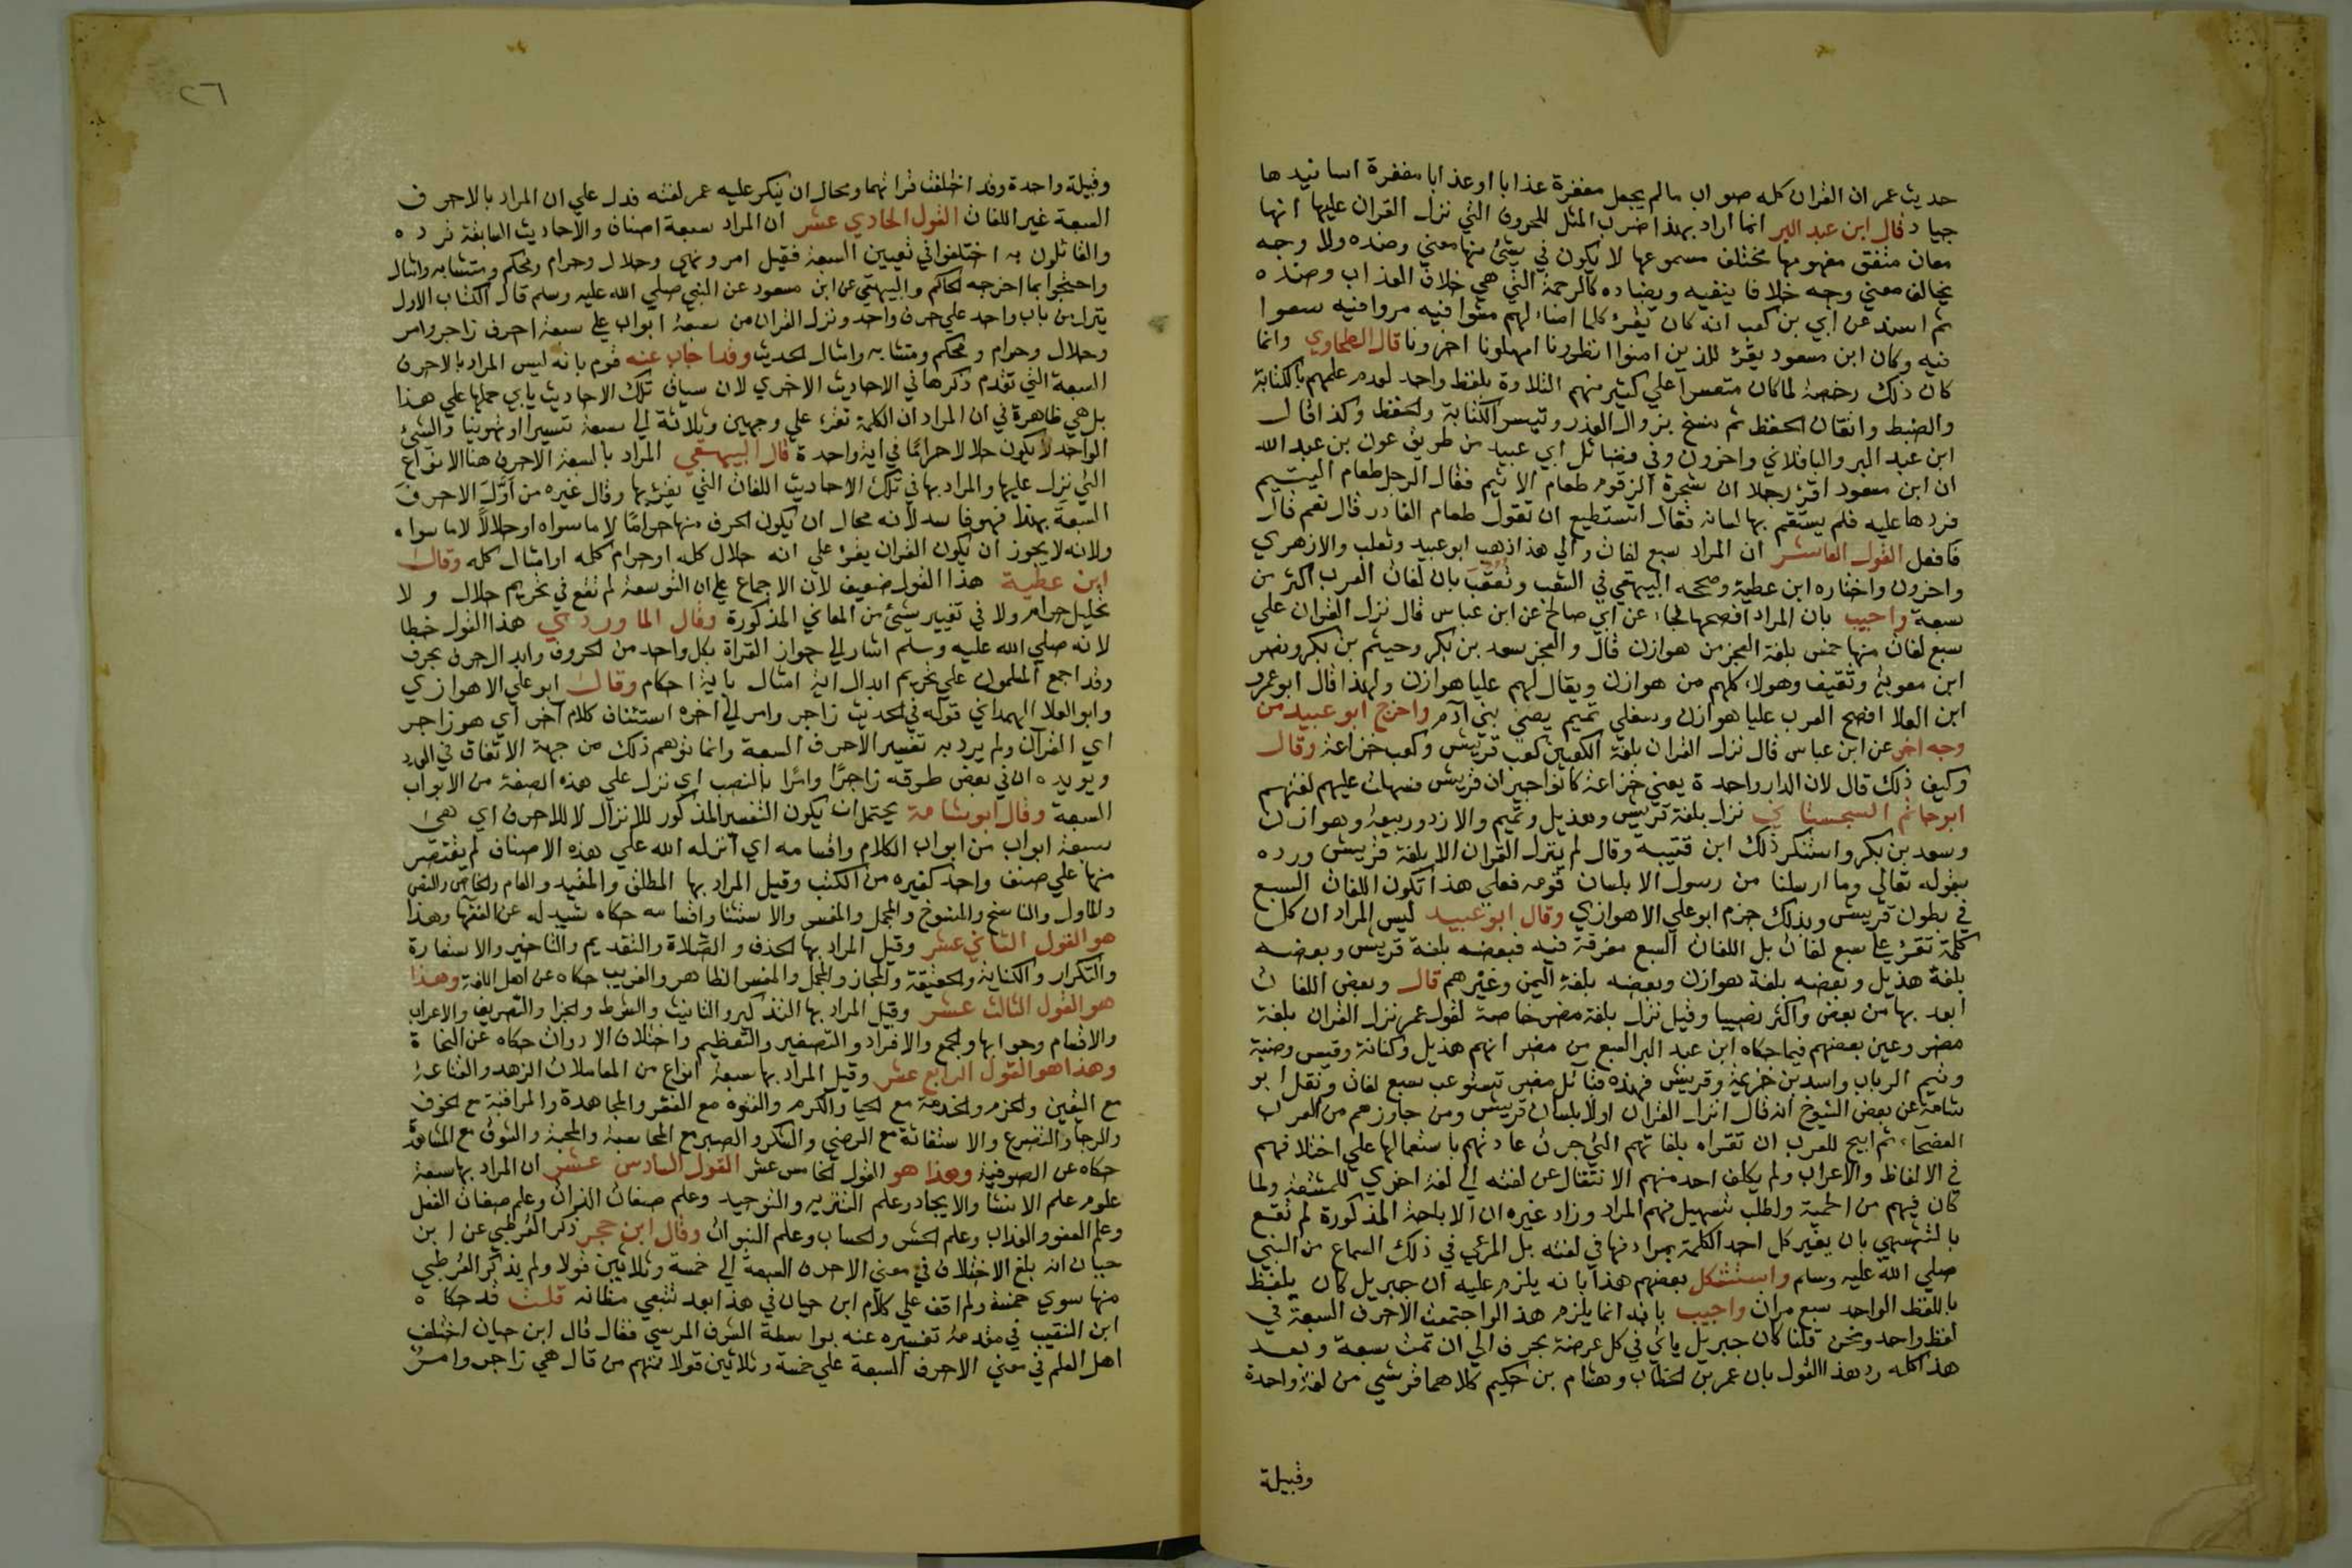 حديث عمر ان القران كله صواب مالم يجعل مغفرة عذابا او عذابا مغفرة اسانيدها
جياد قال ابن عبد البر انما اراد بهذا ضرب المثل للحروف التي نزل القران عليها انها
معان متفق مفهومها مختلف مسموعها لا يكون في شئ منها معني وضده ولا وجه
يخالف معني وجه خلافا ينفيه ويضاده كالرحمة التي هي خلاف العذاب وضده
ثم اسند عن ابي بن كعب انه كان يقرء كلما اضاء لهم مشوا فيه مروا فيه سعوا
فيه وكان ابن مسعود يقرء للذين امنوا انظرونا امهلونا اخرونا قال الطحاوي وانما
كان ذلك رخصة لما كان متعسرا علي كثير منهم التلاوة بلفظ واحد لعدم علمهم بالكتابة
والضبط واتقان الحفظ ثم نسخ بزوال العذر وتيسر الكتابة والحفظ وكذا قال
ابن عبد البر والباقلاني واخرون وفي فضائل ابي عبيد من طريق عون بن عبد الله
ان ابن مسعود اقرء رجلا ان شجرة الزقوم طعام الاثيم فقال الرجل طعام اليتيم
فردها عليه فلم يستقم بها لسانه فقال اتستطيع ان تقول طعام الفاجر قال نعم قال
فافعل القول العاشر ان المراد سبع لغات والي هذا ذهب ابو عبيد وثعلب والازهري
واخرون واختاره ابن عطية وصححه البيهقي في الشعب وتعقب بان لغات العرب اكثر من
سبعة واجيب بان المراد افصحها فجاء عن ابي صالح عن ابن عباس قال نزل القران علي
سبع لغات منها خمس بلغة العجز من هوازن قال والعجز سعد بن بكر وجشم بن بكر ونصر
ابن معوية وثقيف وهولاء كلهم من هوازن ويقال لهم عليا هوازن ولهذا قال ابو عمرو
ابن العلا افصح العرب عليا هوازن وسفلي تميم يعني بني آدم واخرج ابو عبيد من
وجه اخر عن ابن عباس قال نزل القران بلغة الكعبين كعب قريش وكعب خزاعة وقال
وكيف ذلك قال لان الدار واحدة يعني خزاعة كانوا جيران قريش فسهلت عليهم لغتهم
ابو حاتم السجستاني نزل بلغة قريش وهذيل وتميم والازد وربيعة وهوازن
وسعد بن بكر واستنكر ذلك ابن قتيبة وقال لم ينزل القران الا بلغة قريش ورده
بقوله تعالي وما ارسلنا من رسول الا بلسان قومه فعلي هذا تكون اللغات السبع
في بطون قريش وبذلك جزم ابو علي الاهوازي وقال ابو عبيد ليس المراد ان كل
كلمة تقرء علي سبع لغات بل اللغات السبع مفرقة فيه فبعضه بلغة قريش وبعضه
بلغة هذيل وبعضه بلغة هوازن وبعضه بلغة اليمن وغيرهم قال وبعض اللغات
اسعد بها من بعض واكثر نصيبا وقيل نزل بلغة مضر خاصة لقول عمر نزل القران بلغة
مضر وعين بعضهم فيما حكاه ابن عبد البر السبع من مضر انهم هذيل وكنانة وقيس وضبة
وتيم الرباب واسد بن خزيمة وقريش فهذه قبائل مضر تستوعب سبع لغات ونقل ابو
شامة عن بعض الشيوخ انه قال انزل القران اولا بلسان قريش ومن جاورهم من العرب
الفصحآء ثم ابيح للعرب ان تقراه بلغاتهم التي جرت عادتهم باستعمالها علي اختلافهم
في الالفاظ والاعراب ولم يكلف احد منهم الانتقال عن لغته الي لغة اخري للمشقة ولما
كان فيهم من الحمية ولطلب تسهيل فهم المراد وزاد غيره ان الاباحة المذكورة لم تقع
بالتشهي بان يغير كل احد الكلمة بمرادفها في لغته بل المرعي في ذلك السماع من النبي
صلي الله عليه وسلم واستشكل بعضهم هذا بانه يلزم عليه ان جبريل كان يلفظ
باللفظ الواحد سبع مرات واجيب بانه انما يلزم هذا لو اجتمعت الاحرف السبعة في
لفظ واحد ونحن قلنا كان جبريل ياتي في كل عرضة بحرف الي ان تمت سبعة وبعد
هذا كله رد هذا القول بان عمر بن الخطاب وهشام بن حكيم كلاهما قرشي من لغة واحدة
وقبيلة
٢٦
وقبيلة واحدة وقد اختلفت قراتهما ومحال ان ينكر عليه عمر لغته فدل علي ان المراد بالاحرف
السبعة غير اللغات القول الحادي عشر ان المراد سبعة اصناف والاحاديث السابقة ترده
والقائلون به اختلفوا في تعيين السبعة فقيل امر ونهي وحلال وحرام ومحكم ومتشابه وامثال
واحتجوا بما اخرجه الحاكم والبيهقي عن ابن مسعود عن النبي صلي الله عليه وسلم قال الكتاب الاول
ينزل من باب واحد علي حرف واحد ونزل القران من سبعة ابواب علي سبعة احرف زاجر وامر
وحلال وحرام ومحكم ومتشابه وامثال الحديث وقد اجاب عنه قوم بانه ليس المراد بالاحرف
السبعة التي تقدم ذكرها في الاحاديث الاخري لان سياق تلك الاحاديث يابي حملها علي هذا
بل هي ظاهرة في ان المراد ان الكلمة تقرء علي وجهين وثلاثة الي سبعة تيسيرا وتهوينا والشئ
الواحد لا يكون حلالا حرامًا في اية واحدة قال البيهقي المراد بالسبعة الاحرف هنا الانواع
التي نزل عليها والمراد بها في تلك الاحاديث اللغات التي يقرء بها وقال غيره من اوّل الاحرف
السبعة بهذا فهو فاسد لانه محال ان يكون الحرف منها حرامًا لا ما سواه او حلالاً لا ما سواه
ولانه لا يجوز ان يكون القران يقرء علي انه حلال كله او حرام كله او امثال كله وقال
ابن عطية هذا القول ضعيف لان الاجماع علي ان التوسعة لم تقع في تحريم حلال ولا
تحليل حرام ولا في تغيير شئ من المعاني المذكورة وقال الماوردي هذا القول خطا
لانه صلي الله عليه وسلم اشار الي جواز القراة بكل واحد من الحروف وابدال حرف بحرف
وقد اجمع المسلمون علي تحريم ابدال اية امثال باية احكام وقال ابو علي الاهوازي
وابو العلا الهمداني قوله في الحديث زاجر وامر الي اخره استئناف كلام آخر اي هو زاجر
اي القرآن ولم يرد به تفسير الاحرف السبعة وانما توهم ذلك من جهة الاتفاق في العدد
ويويده ان في بعض طرقه زاجرًا وامرًا بالنصب اي نزل علي هذه الصفة من الابواب
السبعة وقال ابو شامة يحتمل ان يكون التفسير المذكور للانزال لا للاحرف اي هي
سبعة ابواب من ابواب الكلام واقسامه اي آنزله الله علي هذه الاصناف لم يقتصر
منها علي صنف واحد كغيره من الكتب وقيل المراد بها المطلق والمقيد والعام والخاص والنص
والماول والناسخ والمنسوخ والمجمل والمفسر والاستثنا واقسامه حكاه شيدله عن الفقها وهذا
هو القول الثاني عشر وقيل المراد بها الحذف والصلاة والتقديم والتاخير والاستعارة
والتكرار والكناية والحقيقة والمجاز والمجمل والمفسر الظاهر والغريب حكاه عن اهل اللغة وهذا
هو القول الثالث عشر وقيل المراد بها التذكير والتانيث والشرط والجزا والتصريف والاعراب
والاقسام وجوابها والجمع والافراد والتصغير والتعظيم واختلاف الادوات حكاه عن النحاة
وهذا هو القول الرابع عشر وقيل المراد بها سبعة انواع من المعاملات الزهد والقناعة
مع اليقين والحزم والخدمة مع الحيا والكرم والفتوه مع الفقر والمجاهدة والمراقبة مع الخوف
والرجا والتضرع والاستغاثة مع الرضي والشكر والصبر مع المحاسبة والمحبة والشوق مع المشاهدة
حكاه عن الصوفية وهذا هو القول الخامس عشر القول السادس عشر ان المراد بها سبعة
علوم علم الانشا والايجاد وعلم التنزيه والتوحيد وعلم صفات الذات وعلم صفات الفعل
وعلم العفو والعذاب وعلم الحشر والحساب وعلم النبوات وقال ابن حجر ذكر القرطبي عن ابن
حبان انه بلغ الاختلاف في معني الاحرف السبعة الي خمسة وثلاثين قولا ولم يذكر القرطبي
منها سوي خمسة ولم اقف علي كلام ابن حبان في هذا بعد تتبعي مظانه قلت قد حكاه
ابن النقيب في مقدمة تفسيره عنه بواسطة الشرف المرسي فقال قال ابن حبان اختلف
اهل العلم في معني الاحرف السبعة علي خمسة وثلاثين قولا فمنهم من قال هي زاجر وامر